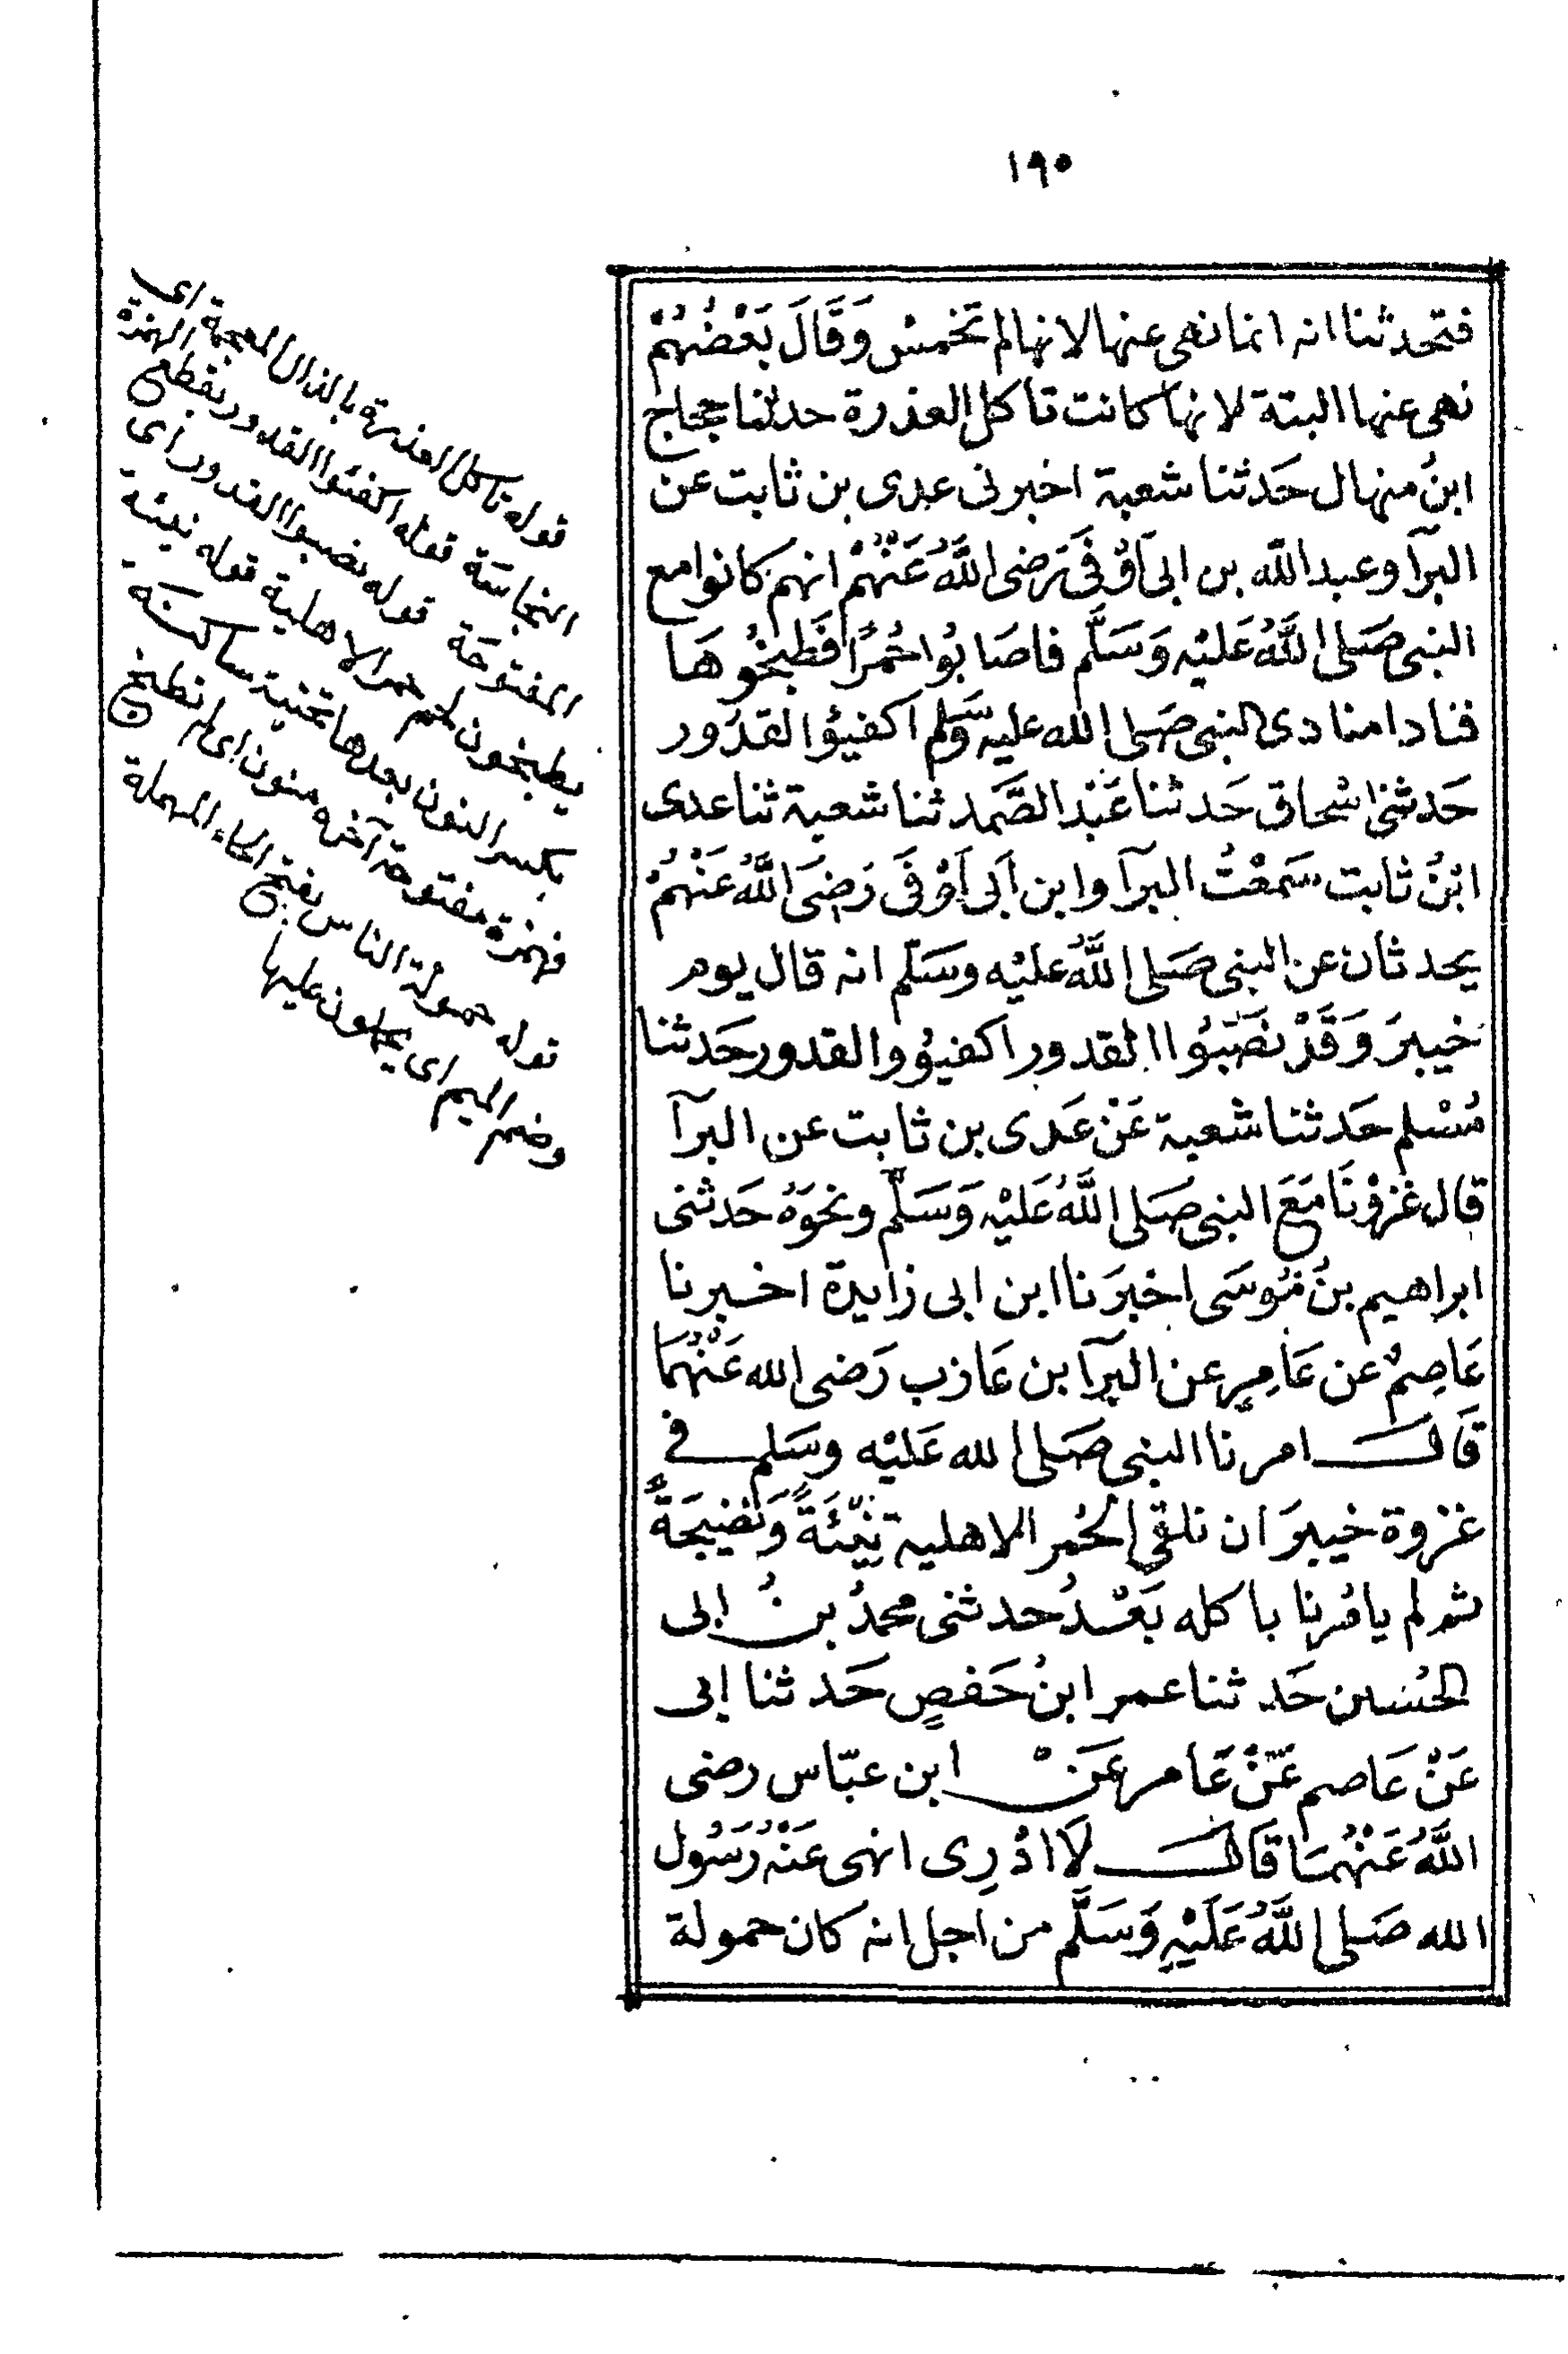 ١٩٠
فتحدثنا انه انما نهى عنها لانها لم تخمس وَقَالَ بَعْضُهُمْ
نهى عنها البتة لانها كانت تاكل العذرة حدثنا حجاج
ابنُ منهال حَدثنا شعبة اخبرنى عدى بن ثابت عن
البرآ وعبد اللّه بن ابى اَوْفَى رَضى اللَّهُ عَنْهُمْ انهم كانوا مع
النبى صَلى اللَّهُ عَلَيْهِ وَسَلَّم فاصَابُوا حُمُرًا فَطَبَخُوهَا
فنادا منادى النبى صَلى الله عليه وسَّلم اكفيؤا القدُور
حَدثنى اسْحاق حَدثنا عَبْد الصَّمد ثنا شعبة ثنا عدى
ابْنُ ثابت سَمعْتُ البرآ وابن اَبى اَوْفَى رَضِىَ اللَّهُ عَنْهُمْ
يحدثان عن النبى صَلى اللَّهُ عليْه وسَلّم انه قال يوم
خيبرَ وَقَدْ نصَبُوا القدور اكفيؤوا القدور حَدثنا
مُسْلم حَدثنا شعبة عَنْ عَدى بن ثابت عن البرآ
قال غزوْنَا مَعَ النبى صَلى اللَّهُ عَليْهِ وَسَلَّم ونحوَهُ حَدثنى
ابراهيم بنُ مُوسَى اخبرَنا ابن ابى زايدة اخبرنا
عَاصِمٌ عن عَامِرٍ عن البرآ بن عَازب رَضى الله عَنْهُمَا
قَالَ امرنا النبى صَلى الله عَليْه وسَلم فى
غزوة خيبرَ ان نلقى الحُمر الاهلية نِيْئَةً وَنَضِيجَةً
ثم لم يامُرنا باكله بَعْدُ حدثنى محمدُ بنُ ابى
الحُسين حَدثنا عمر ابنُ حَفصٍ حَدثنا ابى
عَنْ عَاصم عَنْ عَامر عَنْ ابن عبّاس رضى
اللَّهُ عَنْهُمَا قَالَ لَا ادْرِى انهى عَنْهُ رَسُول
الله صَلى اللَّهُ عَلَيْهِ وَسَلَّم من اجل انه كان حمولة
قوله تاكل العذرة بالذال المعجمة اى
النجاسَة قوله اكفئوا القدور بقطع الهمزة
المفتوحَة قوله نصبوا القدور اى
يطبخون لحم حمر الاهلية قوله نيئة
بكسر النون بعدها تحتية ساكنة
فهمزة مفتوحة آخره منون اى لم تطبخ
قوله حمولة الناس بفتح الحاء المهملة
وضم الميم اى يحملون عليها